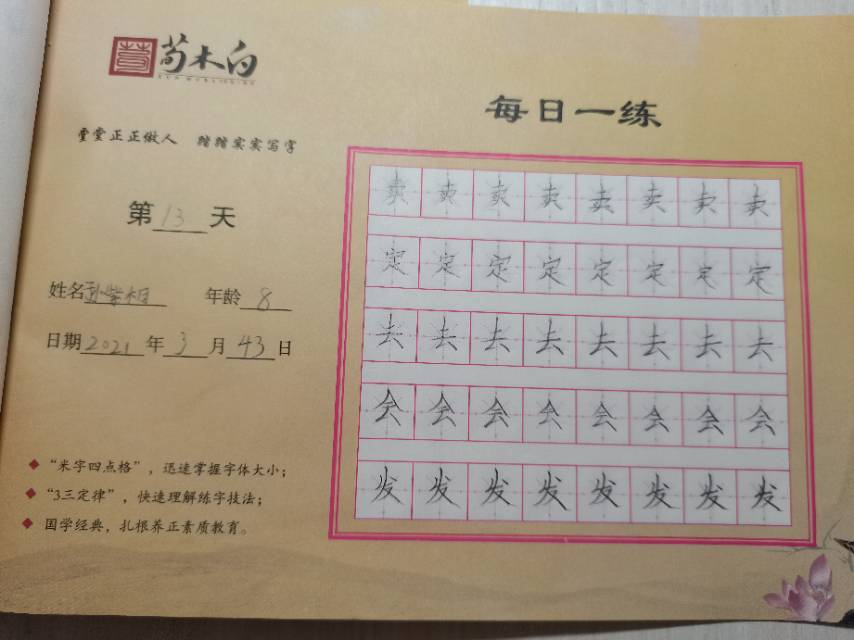 荀木白
每日一练
堂堂正正做人 踏踏实实写字
第13天
姓名 年龄8
日期2021年3月43日
卖卖卖卖卖卖卖卖
定定定定定定定定
去去去去去去去去
会会会会会会会会
发发发发发发发发
◆“米字四点格”，迅速掌握字体大小；
◆“3三定律”，快速理解练字技法；
◆国学经典，扎根养正素质教育。